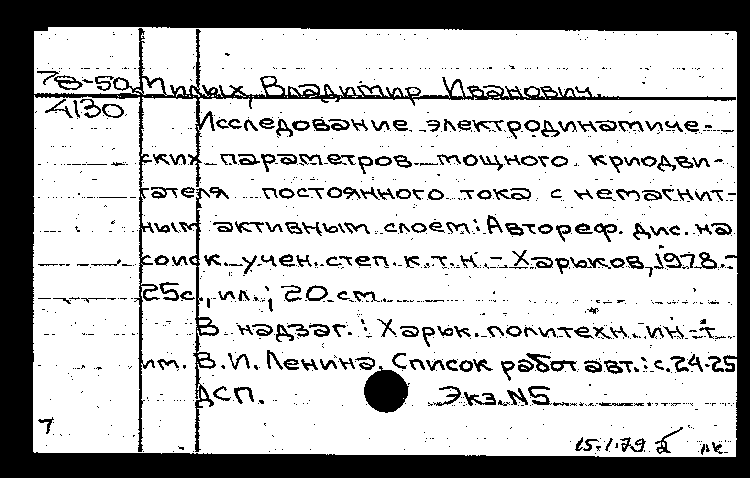 78-50 Милых, Владимир Иванович.
4130
Исследование электродинамиче-
ских параметров мощного криодви-
гателя постоянного тока с немагнит-
ным активным слоем: Автореф. дис. на
соиск. учен. степ. к.т.н. - Харьков, 1978. -
25с., ил.; 20 см
В надзаг.: Харьк. политехн. ин-т
им. В.И. Ленина. Список работ авт.: с. 24-25
ДСП. Экз. N5
7
15.1.79